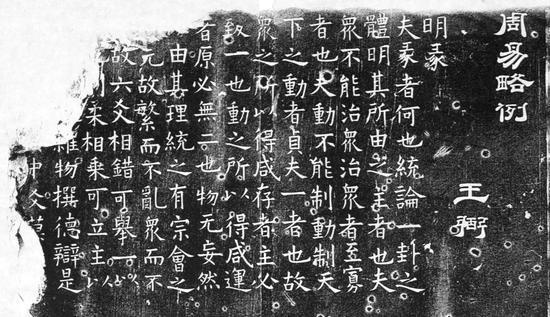 周易略例
王弼
明彖
夫彖者何也統論一卦之
體明其所由之主者也夫
眾不能治眾治眾者至寡
者也夫動不能制動制天
下之動者貞夫一者也故
眾之所以得咸存者主必
致一也動之所以得咸運
者原必無二也物无妄然
由其理統之有宗會之
元故繁而不亂眾而不
故六爻相錯可舉一以
柔相乘可立主以
物撰德辯是
中爻